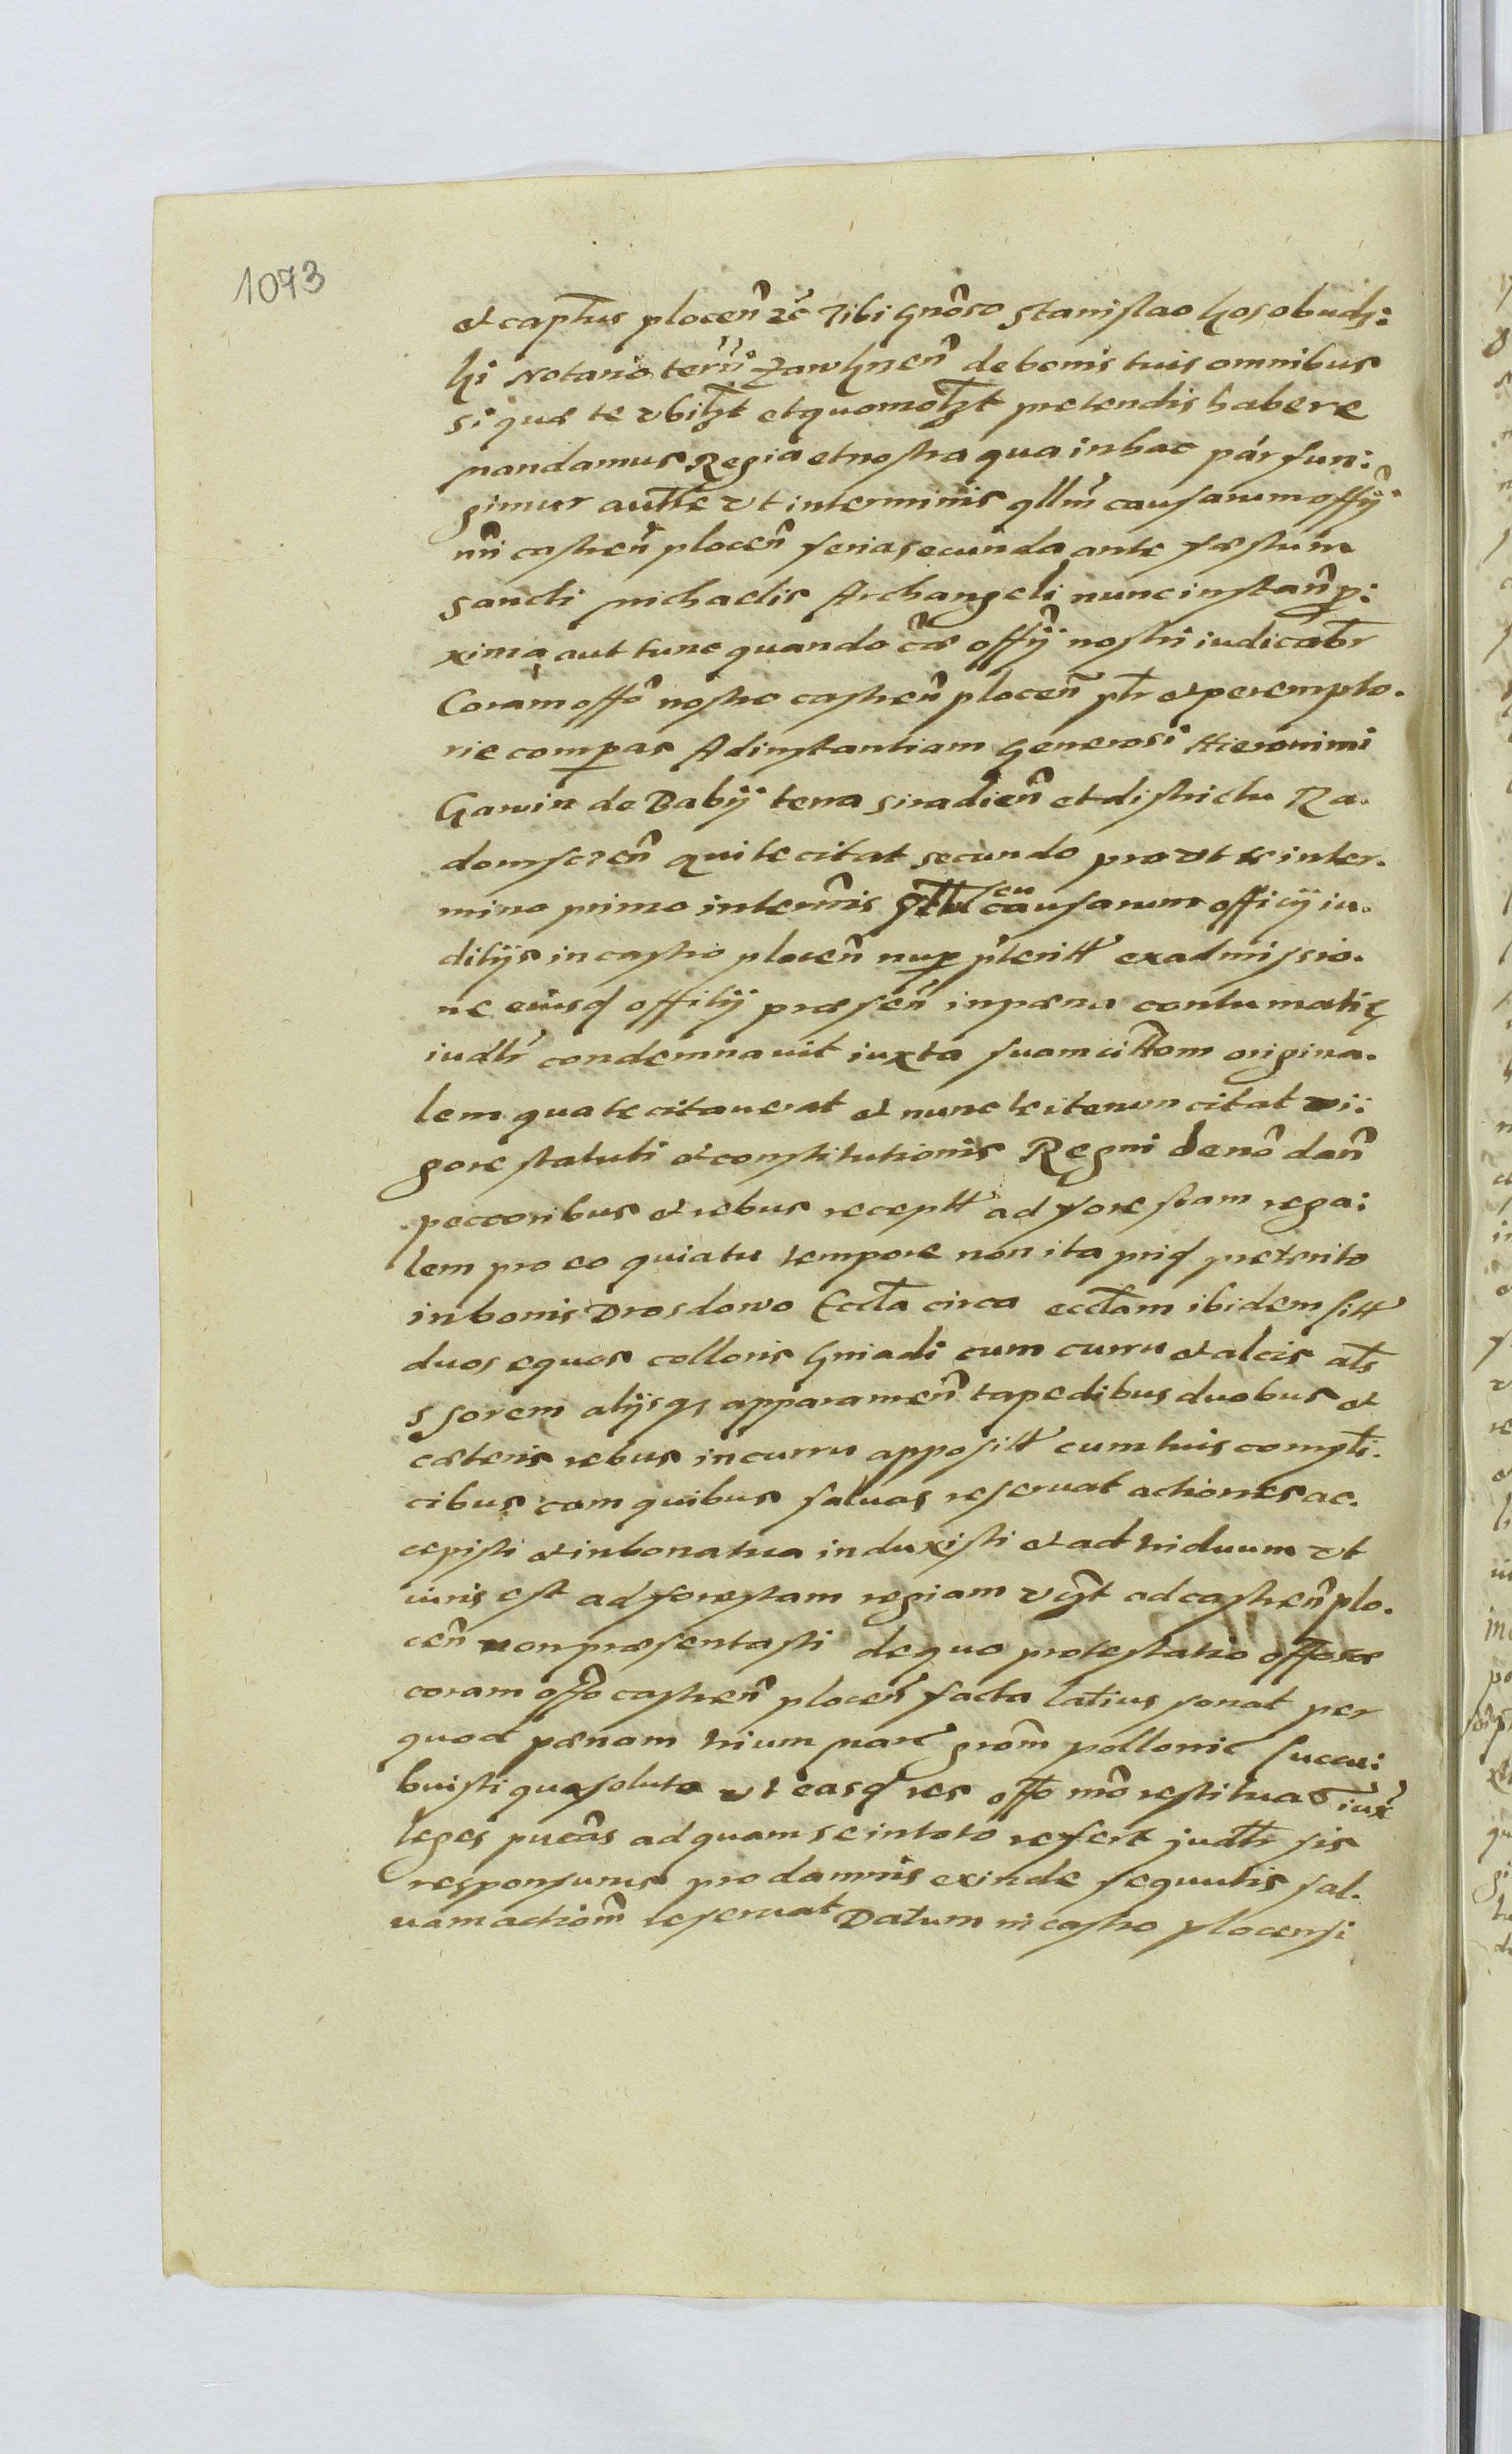 1073
et captus plocen̄ zc̄ Tibi gnōso Stanislao Kosobudz:
ki Notario terrn̄ Zawkrzen̄ de bonis tuis omnibus
si quæ te vbilzt et quomolzt pretendis habere
mandamus Regia et nostra qua in hac par̄ fun:
gimur autthe vt in terminis qllm̄ causarum offÿ
nr̄i castren̄ plocen̄ feria secunda ante fæstum
Sancti Michaelis Archangeli nunc instan̄ p̱:
xima aut tunc quando cæ offÿ nostri iudicabr̄
Coram offō nostro castren̄ plocen̄ pltr et perempto.
rie compas Ad instantiam Generosi Hieronimi
Gawin de Babÿ terra Siradien̄ et districtu Ra.
domscen̄ qui te citat secundo pro vt te in ter.
mino primo in termīs qllu seu causarum officÿ iu.
ditÿs in castro plocen̄ nup̱ pr̄teritt exadmissio.
ne eiusq̱ offitÿ præsen̄ in pæna contumatiæ
iudtr̄ condemnauit iuxta suam cittōm origina.
lem qua te citauerat et nunc te iterum citat vi:
gore statuti et constitutionis Regni de nō dan̄
peccoribus et rebus receptt ad forestam rega:
lem pro eo quia tu tempore non ita pridq̱ preterito
in bonis Drosdowo Eccla circa ecclam ibidem sitt
duos equos colloris gniadi cum curru et alcis als
s sorem alÿsqȝ apparamen̄ tapedibus duobus et
cæteris rebus in curru appositt cum tuis compli.
cibus cum quibus saluas reseruat actiones ac.
cepisti et in bona tua induxisti et ad triduum vt
iuris est ad forestam regiam vg̱t ad castren̄ plo.
cen̄ non præsentasti de quo protestatio offosæ
coram offō castren̄ plocen̄ facta latius sonat per
quod pænam trium marc̄ grom̄ pollonic̄ succu:
buisti qua soluta vt easq̱ res offo nrō restituas iux̄
leges pucās ad quam se in toto refert judtr sis
responsurus pro damnis exinde sequutis sal.
uam actiom̄ reseruat Datum in castro plocensi